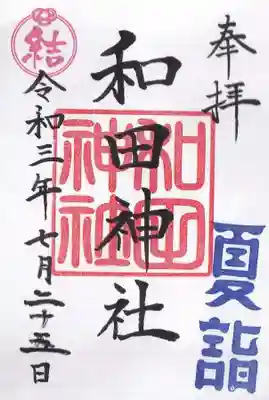 奉拝
夏詣
和田神社
和田神社
結
令和三年七月二十五日